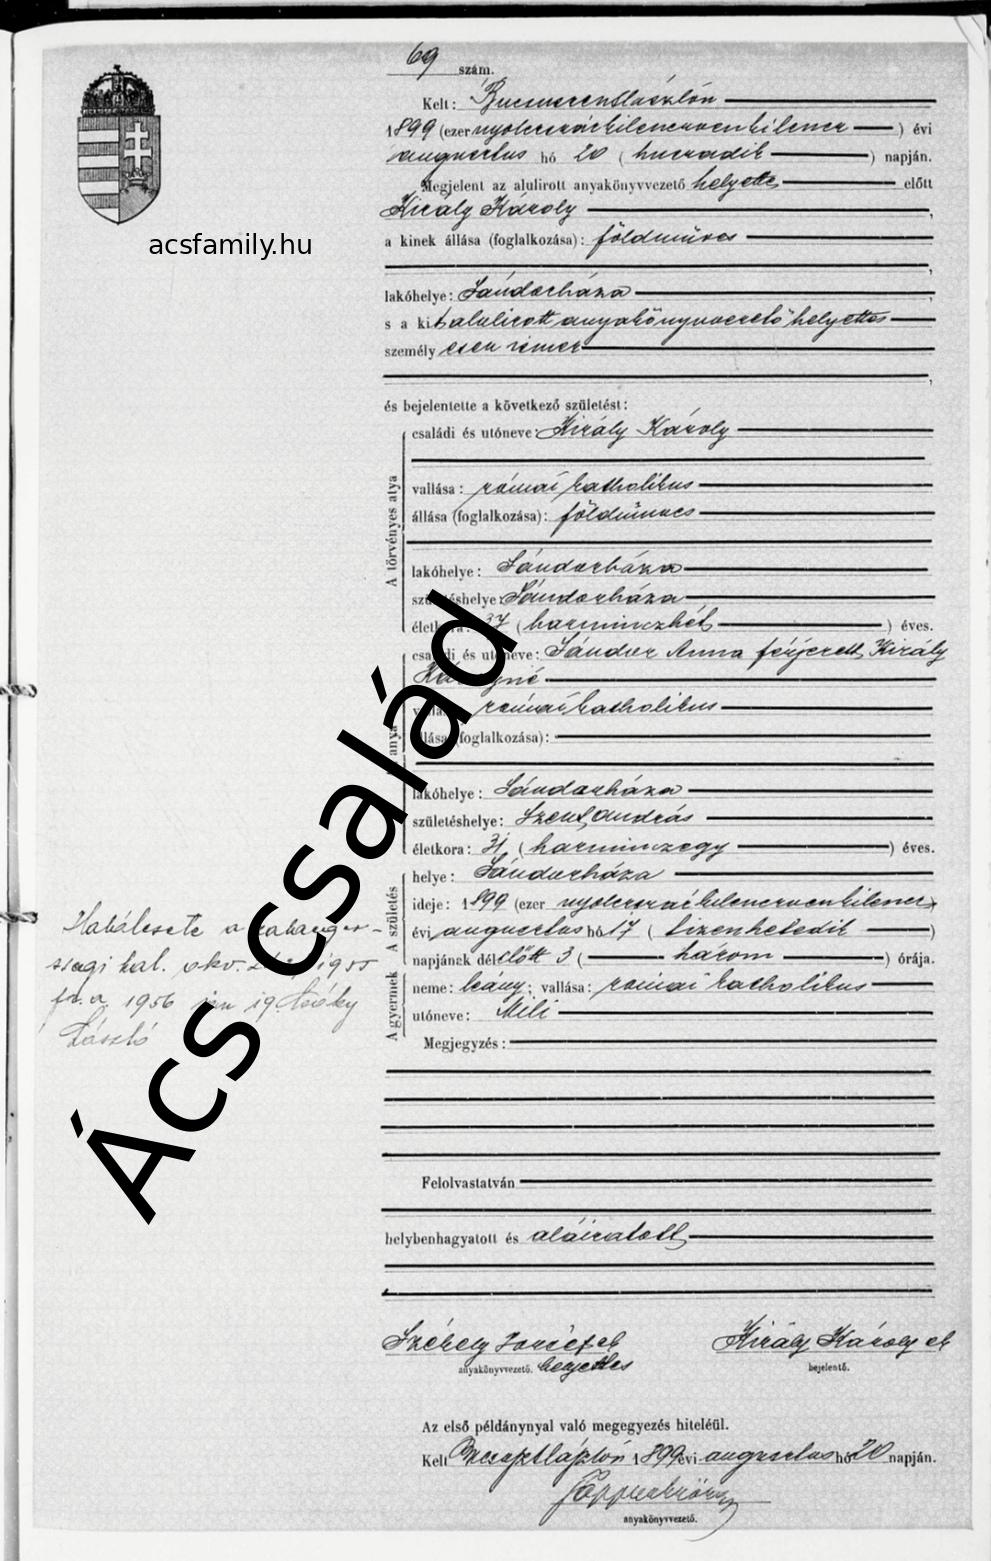 69 szám.
Kelt: Bucsuszentlászlón
1899 (ezer nyolczszázkilenczvenkilencz) évi
augusztus hó 20 (huszadik) napján.
Megjelent az alulirott anyakönyvvezető helyettes előtt
Király Károly,
acsfamily.hu
a kinek állása (foglalkozása): földmüves
,
lakóhelye: Sándorháza,
s a kit alulirott anyakönyvvezető helyettes
személyesen ismer
,
és bejelentette a következő születést:
A törvényes atya
családi és utóneve: Király Károly
vallása: római katholikus
állása (foglalkozása): földmüves
lakóhelye: Sándorháza
születéshelye: Sándorháza
életkora: 37 (harminczhét) éves.
anya
családi és utóneve: Sándor Anna férjezett Király
Károlyné
vallása: római katholikus
állása (foglalkozása):
lakóhelye: Sándorháza
születéshelye: Szent András
életkora: 31 (harminczegy) éves.
A gyermek A születés
helye: Sándorháza
ideje: 1899 (ezer nyolczszázkilenczvenkilencz)
évi augusztus hó 17 (tizenhetedik)
napjának délelőtt 3 (három) órája.
neme: leány; vallása: római katholikus
utóneve: Mili
Megjegyzés:
Halálesete a
hal. 1955
1956 19.
László
Ács család
Felolvastatván
helybenhagyatott és aláiratott
Székely József sk Király Károly sk
anyakönyvvezető. helyettes bejelentő.
Az első példánynyal való megegyezés hiteléül.
Kelt Bucsuszentlászlón 1899 évi augusztus hó 20 napján.
anyakönyvvezető.